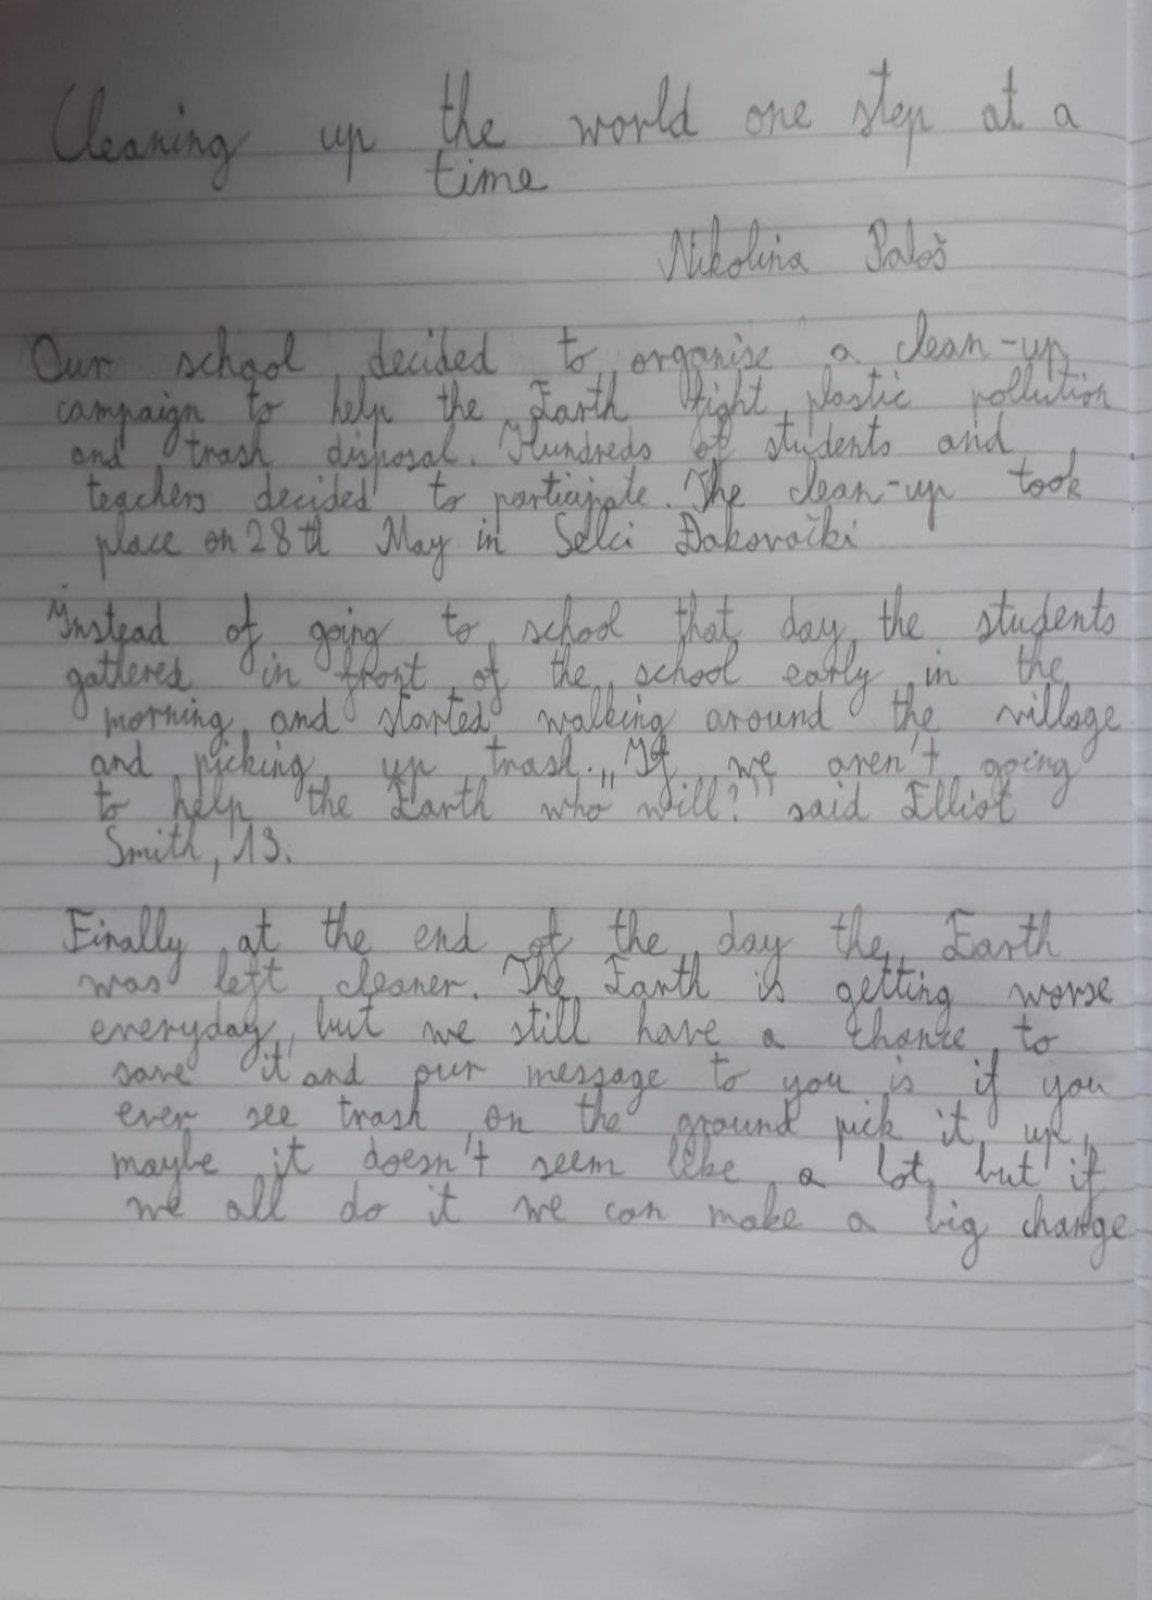 Cleaning up the world one step at a
time
Nikolina Paloš
Our school decided to organise a clean-up
campaign to help the Earth fight plastic pollution
and trash disposal. Hundreds of students and
teachers decided to participate. The clean-up took
place on 28th May in Selci Đakovački
Instead of going to school that day, the students
gathered in front of the school early in the
morning and started walking around the village
and picking up trash. „If we aren't going
to help the Earth who will?" said Elliot
Smith, 13.
Finally at the end of the day the Earth
was left cleaner. The Earth is getting worse
everyday, but we still have a chance to
save it and our message to you is if you
ever see trash on the ground pick it up,
maybe it doesn't seem like a lot, but if
we all do it we can make a big change